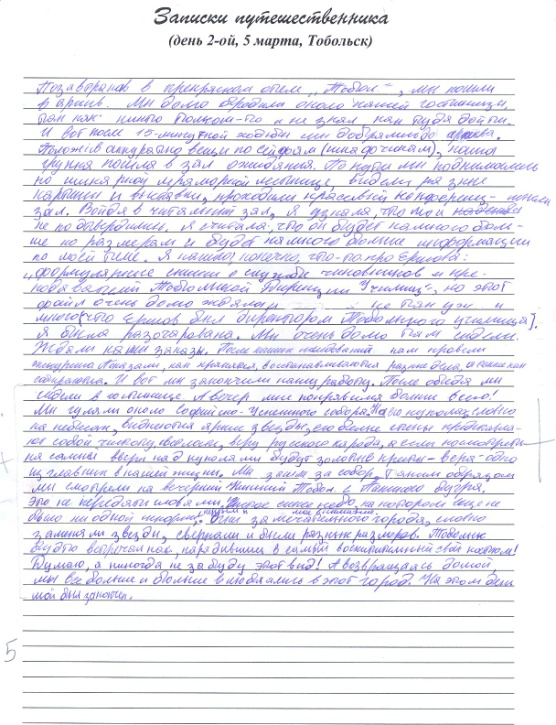 Записки путешественника
(день 2-ой, 5 марта, Тобольск)
Позавтракав в прекрасном отеле „Тобол“, мы пошли
в архив. Мы долго бродили около нашей гостиницы,
так как никто толком-то и не знал, как туда дойти.
И вот после 15-минутной ходьбы мы добрались до архива.
Положив аккуратно вещи по сейфам (шкафчикам), наша
группа пошла в зал ожидания. По пути мы поднимались
по шикарной мраморной лестнице, видели разные
картины и выставки, проходили красивый конференц-
зал. Войдя в читальный зал, я узнала, что мои
не подтвердились. Я считала, что он будет намного боль-
ше по размерам и будет намного больше информации
по моей теме. Я нашла, конечно, что-то про Ершова:
„формулярные списки о службе чиновников и пре-
подавателей Тобольской Дирекции Училищ“, но этот
файл очень долго ждала
много (что Ершов был директором Тобольского училища).
Я была разочарована. Мы очень долго там сидели.
Ждали наши заказы. После наших нам провели
экскурсию. Показали, как хранятся, восстанавливаются разные дела, а также как
собираются. И вот мы закончили нашу работу. После обеда мы
сидели в гостинице. А вечер мне понравился больше всего!
Мы гуляли около Софийско-Успенского собора. На его куполах, словно
на небесах, виднеются яркие звезды, его белые стены представля-
ют собой чистоту, веру русского народа, а если посмотреть
на самый верх над куполами будут золотые кресты - вера - одно
из главных в нашей жизни. Мы зашли за собор, таким образом
мы смотрели на вечерний Нижний Тобол с Панина бугра,
это не передать словами. синее небо, на котором еще не
было ни одной Огни замечательного города, словно
заменяли звезды, сверкали и были разных размеров. Тобольск
будто встречал нас, нарядившись в самый восхитительный свой костюм!
Думаю, я никогда не забуду этот вид! А возвращаясь домой,
мы все больше и больше влюблялись в этот город. На этом день
мой был закончен.
5